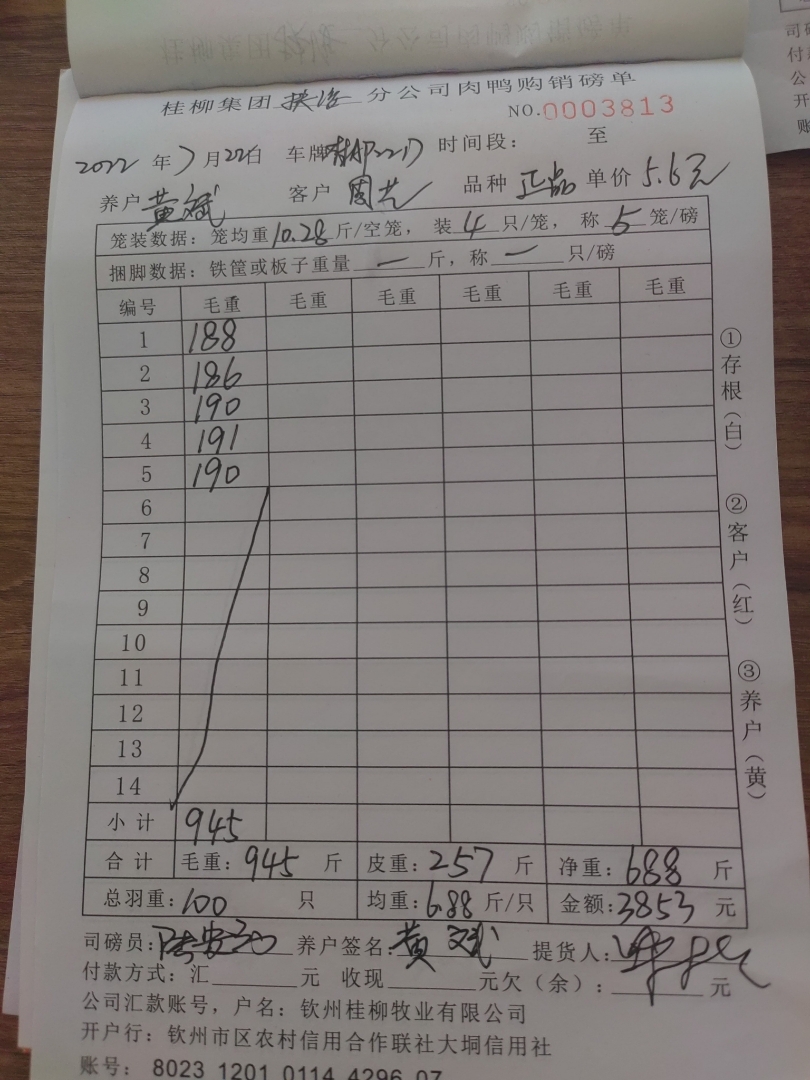 桂柳集团 扶洛 分公司肉鸭购销磅单
NO.0003813
2022 年 7 月 22日 车牌 2217 时间段： 至
养户 黄斌 客户 周艺 品种 正品 单价 5.6元
笼装数据：笼均重 10.28 斤/空笼，装 4 只/笼，称 5 笼/磅
捆脚数据：铁筐或板子重量 一 斤，称 一 只/磅
编号 毛重 毛重 毛重 毛重 毛重 毛重
1 188
2 186
3 190
4 191
5 190
6
7
8
9
10
11
12
13
14
小计 945
合计 毛重：945 斤 皮重：257 斤 净重：688 斤
总羽重：100 只 均重：6.88 斤/只 金额：3853 元
司磅员： 养户签名：黄斌 提货人：
付款方式：汇 元 收现 元欠（余）： 元
公司汇款账号，户名：钦州桂柳牧业有限公司
开户行：钦州市区农村信用合作联社大垌信用社
账号： 8023 1201 0114 4296 07
①存根（白）
②客户（红）
③养户（黄）